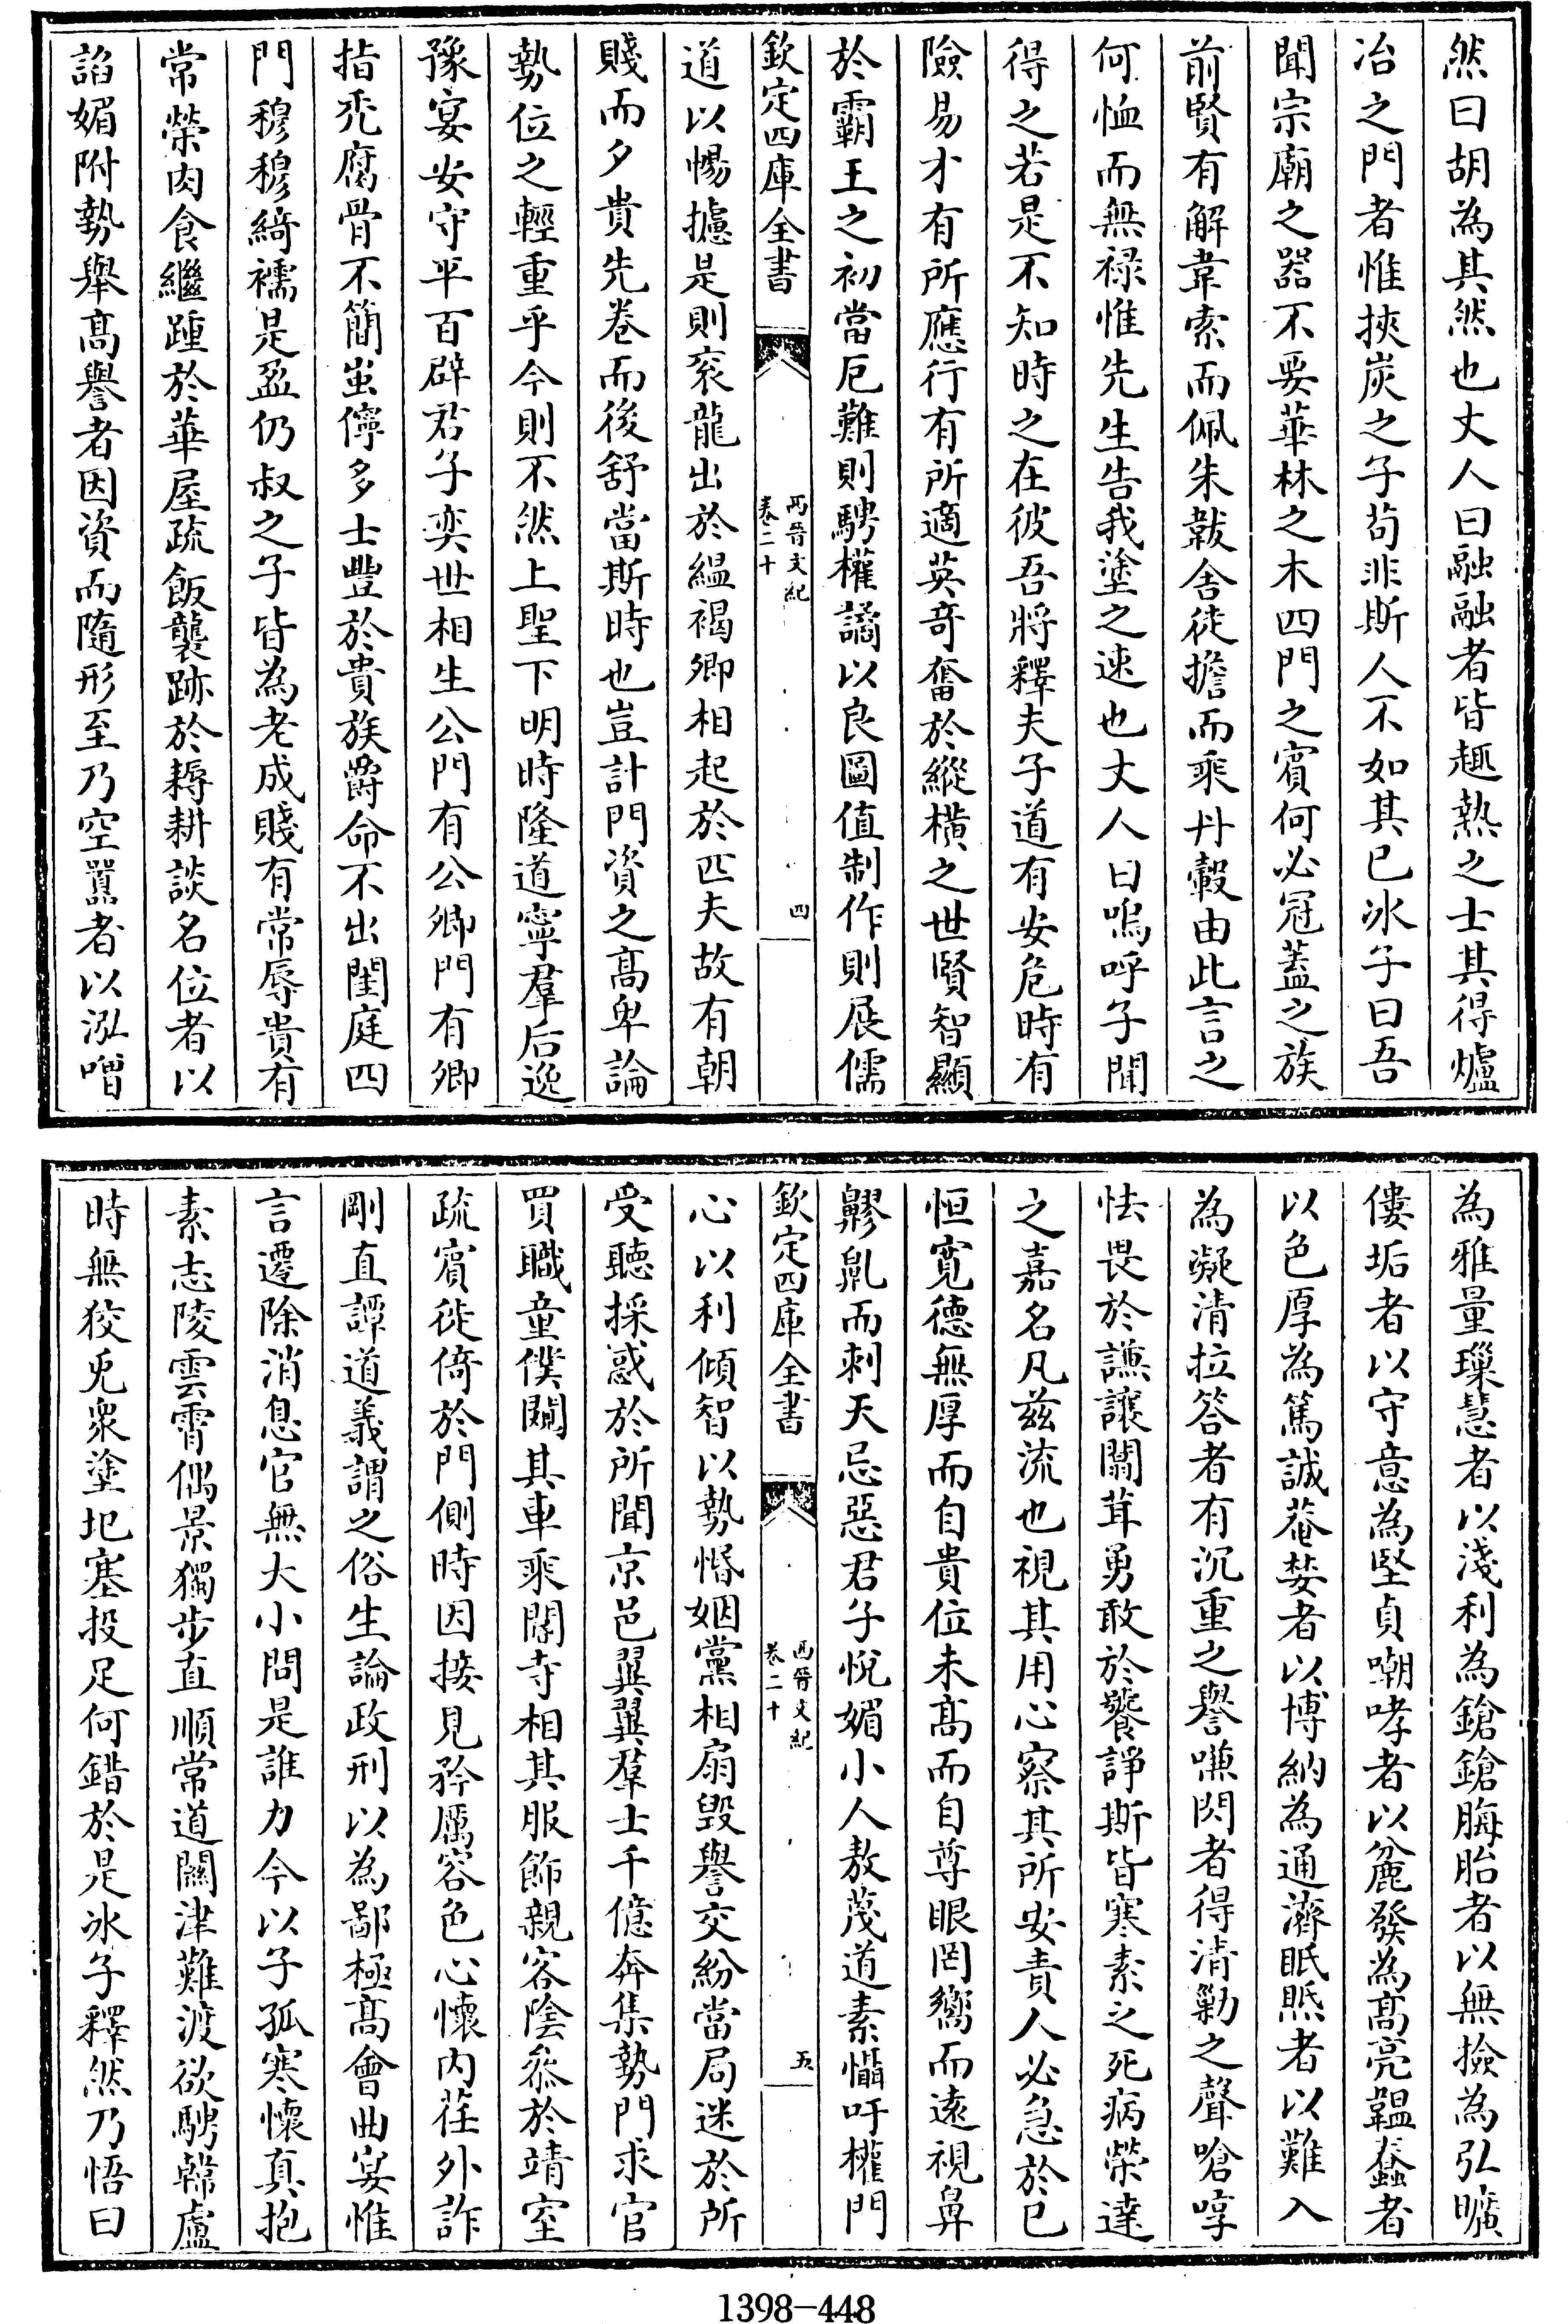 然曰胡為其然也丈人曰融融者皆趣熱之士其得爐
冶之門者惟挾炭之子苟非斯人不如其已冰子曰吾
聞宗廟之器不要華林之木四門之賓何必冠蓋之族
前賢有解韋索而佩朱韍舍徒擔而乘丹轂由此言之
何恤而無祿惟先生告我塗之速也丈人曰嗚呼子聞
得之若是不知時之在彼吾將釋夫子道有安危時有
險易才有所應行有所適英奇奮於縱橫之世賢智顯
於霸王之初當厄難則騁權譎以良圖值制作則展儒
欽定四庫全書
西晉文紀
卷二十
四
道以暢攄是則衮龍出於緼褐卿相起於匹夫故有朝
賤而夕貴先卷而後舒當斯時也豈計門資之高卑論
勢位之輕重乎今則不然上聖下明時隆道寧羣后逸
豫宴安守平百辟君子奕世相生公門有公卿門有卿
指禿腐骨不簡蚩儜多士豐於貴族爵命不出閨庭四
門穆穆綺襦是盈仍叔之子皆為老成賤有常辱貴有
常榮肉食繼踵於華屋疏飯襲跡於耨耕談名位者以
諂媚附勢舉高譽者因資而隨形至乃空囂者以泓噌
為雅量璅慧者以淺利為鎗鎗脢胎者以無撿為弘曠
僂垢者以守意為堅貞嘲哮者以麄發為高亮韞蠢者
以色厚為篤誠菴婪者以博納為通濟眂眂者以難入
為凝清拉答者有沉重之譽嗛閃者得清勦之聲嗆啍
怯畏於謙讓闒茸勇敢於饕諍斯皆寒素之死病榮達
之嘉名凡茲流也視其用心察其所安責人必急於已
恒寬德無厚而自貴位未高而自尊眼罔嚮而遠視鼻
鼽鼿而刺天忌惡君子悅媚小人敖蔑道素懾吁權門
欽定四庫全書
西晉文紀
卷二十
五
心以利傾智以勢惛姻黨相扇毀譽交紛當局迷於所
受聽採惑於所聞京邑翼翼羣士千億奔集勢門求官
買職童僕闚其車乘閽寺相其服飾親客陰叅於靖室
疏賓徙倚於門側時因接見矜厲容色心懷內荏外詐
剛直譚道義謂之俗生論政刑以為鄙極高會曲宴惟
言遷除消息官無大小問是誰力今以子孤寒懷真抱
素志陵雲霄偶景獨步直順常道關津難渡欲騁韓盧
時無狡兔衆塗圮塞投足何錯於是冰子釋然乃悟曰
1398-448